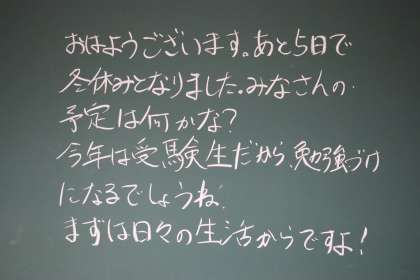 おはようございます。あと5日で
冬休みとなりました。みなさんの
予定は何かな？
今年は受験生だから、勉強づけ
になるでしょうね。
まずは日々の生活からですよ！